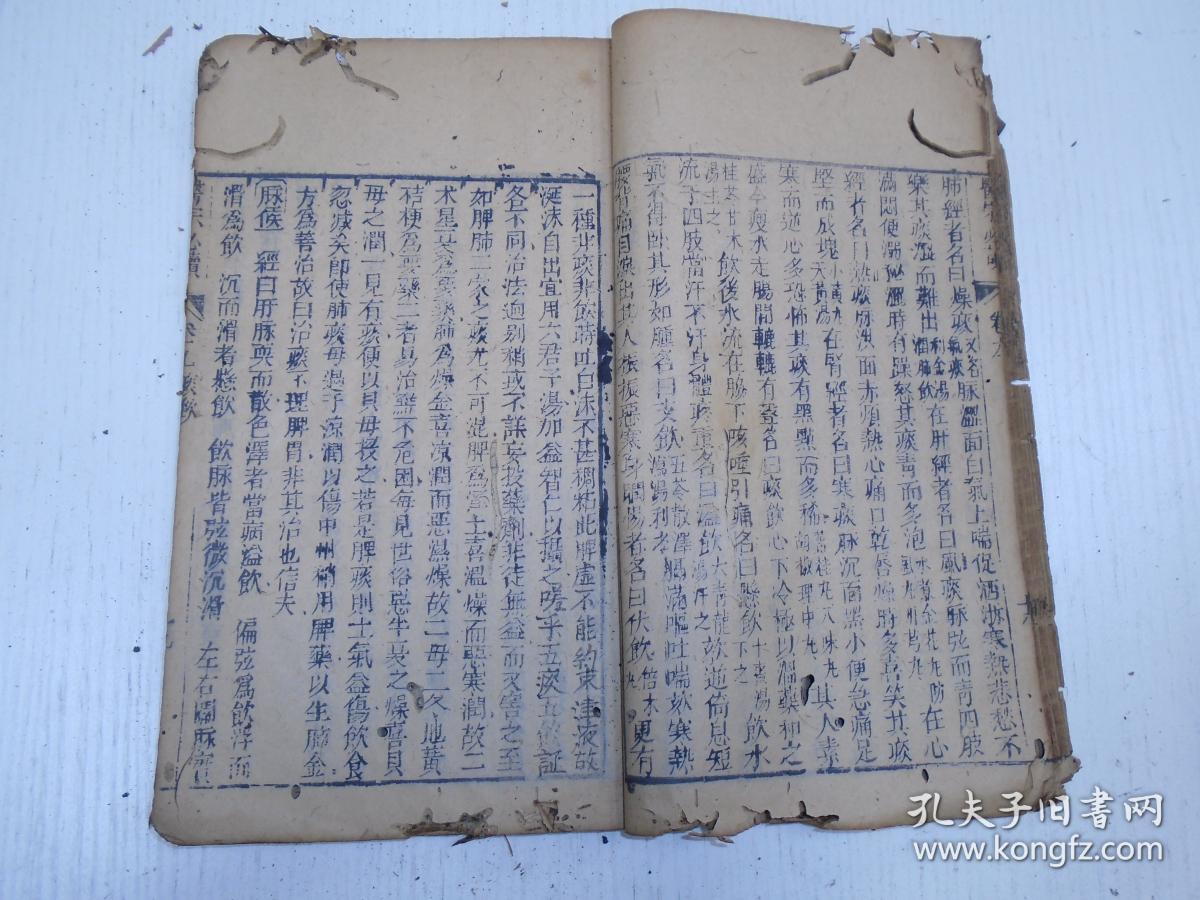 肺經者名曰燥痰又名氣痰脉澀面白氣上喘促洒淅寒熱悲愁不
樂其痰澀而難出利金湯潤肺飲在肝經者名曰風痰脉弦而青四肢
滿悶便溺秘澀時有躁怒其痰青而多泡水煮金花丸防風丸在心
經者名曰熱痰脉洪面赤煩熱心痛口乾唇燥時多喜笑其痰
堅而成塊小黃丸天黃湯在腎經者名曰寒痰脉沉面黑小便急痛足
寒而逆心多恐怖其痰有黑點而多稀薑桂丸八味丸胡椒理中丸其人素
盛今瘦水走腸間轆轆有聲名曰痰飲心下冷極以溫藥和之
桂苓甘朮飲後水流在脇下咳唾引痛名曰懸飲十棗湯飲水
湯主之
流于四肢當汗不汗身體疼重名曰溢飲大青龍湯汗之咳逆倚息短
氣不得卧其形如腫名曰支飲五苓散澤瀉湯利之膈滿嘔吐喘欬寒熱
腰背痛目淚出其人振振惡寒身瞤惕者名曰伏飲倍朮丸更有
一種非痰非飲時吐白沫不甚稠粘此脾虛不能約束津液故
涎沫自出宜用六君子湯加益智仁以攝之嗟乎五痰五飲証
各不同治法迥别稍或不詳妄投藥劑非徒無益而又害之至
如脾肺二家之痰尤不可混脾為濕土喜溫燥而惡寒潤故二
术星夏為要藥肺為燥金喜凉潤而惡溫燥故二母二冬地黃
桔梗為要藥二者易治鮮不危困每見世俗惡半夏之燥喜貝
母之潤一見有痰便以貝母投之若是脾痰則土氣益傷飲食
忽減矣即使肺痰毋過于凉潤以傷中州稍用脾藥以生肺金
方為善治故曰治痰不理脾胃非其治也信夫
脉候 經曰肝脉耎而散色澤者當病溢飲 偏弦為飲浮而
滑為飲 沉而滑者懸飲 飲脉皆弦微沉滑 左右關脉實
醫宗必讀 卷九 痰飲
孔夫子旧书网
www.kongfz.com